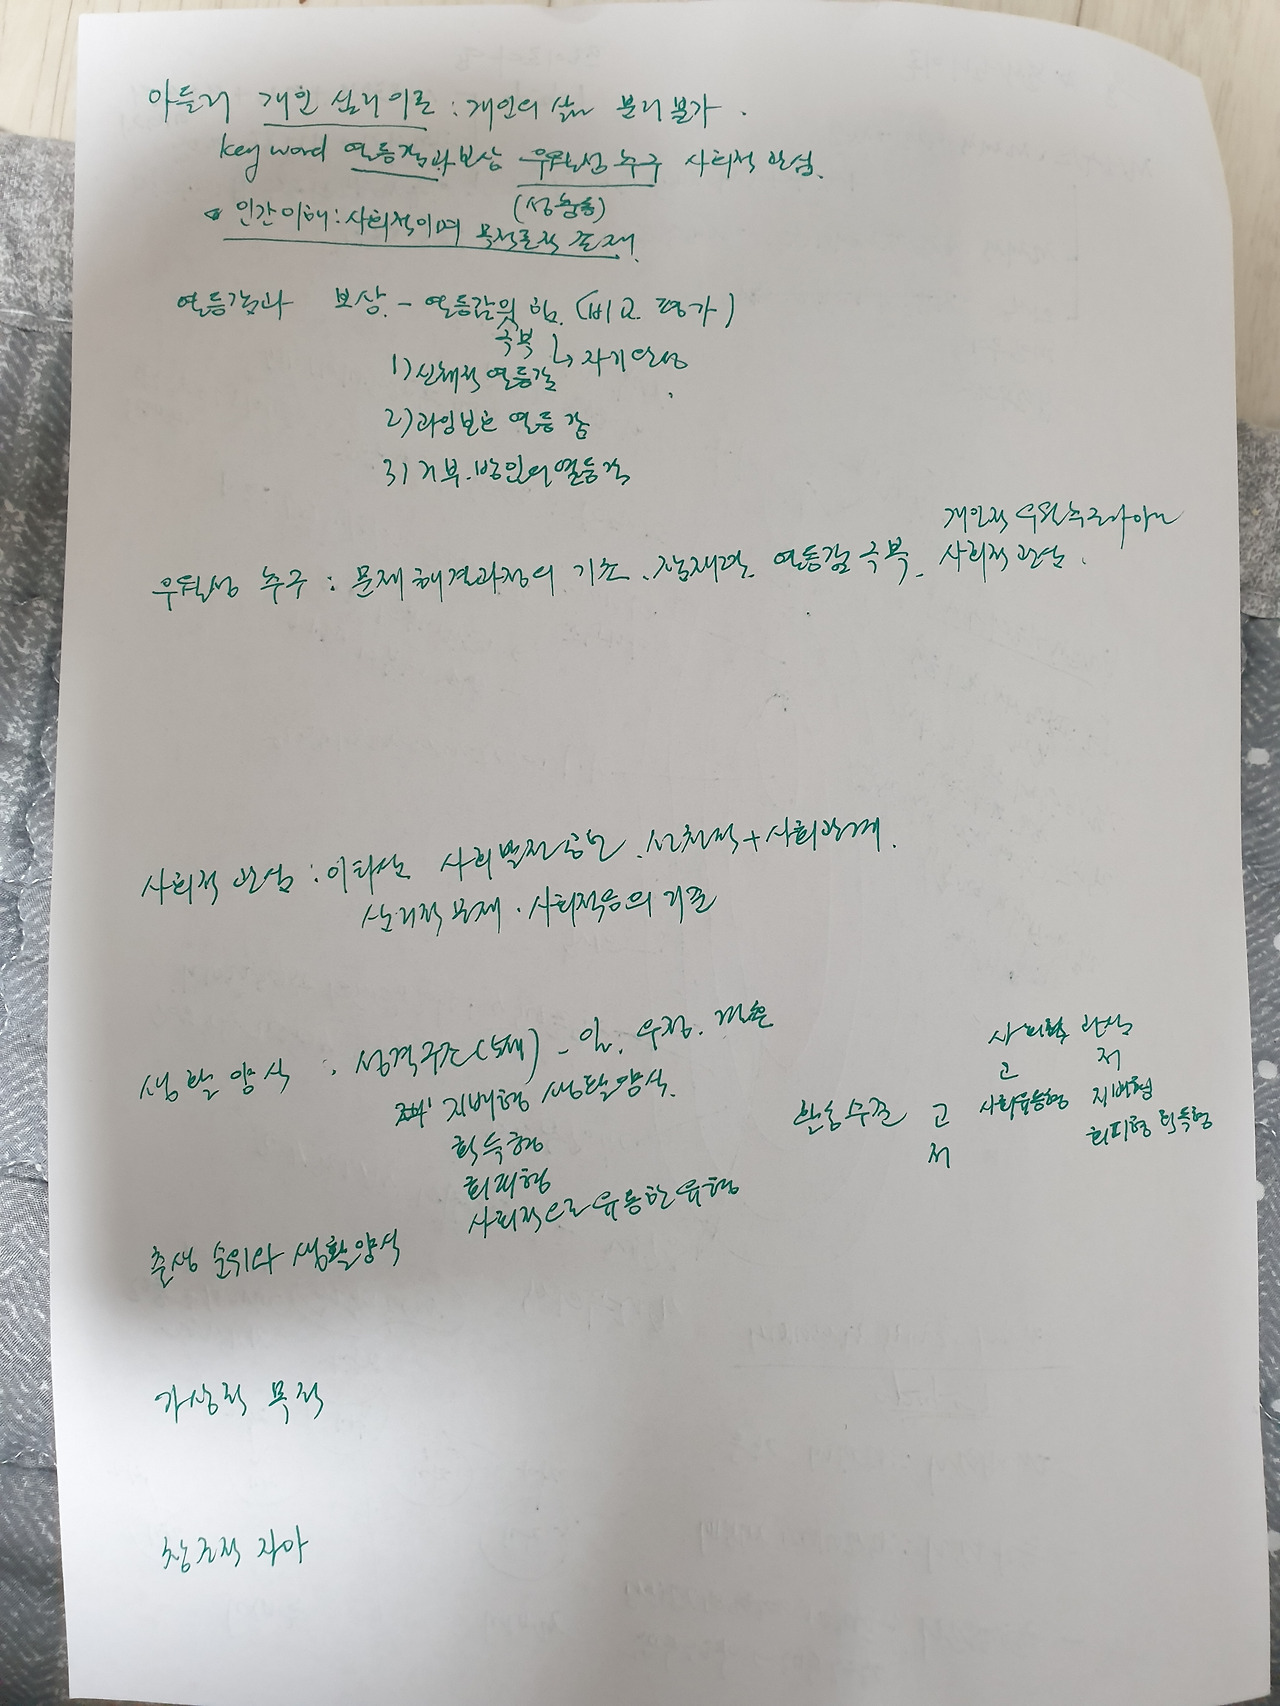 아들러 개인 심리이론 : 개인의 삶 분리불가.
key word 열등감과 보상 우월성 추구 사회적 관심.
인간이해: 사회적이며 목적론적 존재.
열등감과 보상 - 열등감의 힘. (비교 평가)
극복 ↳ 자기완성
1) 신체적 열등감
2) 과잉보호 열등감
3) 거부. 방임의 열등감
개인적 우월추구가 아닌
우월성 추구 : 문제해결과정의 기초. 잠재력. 열등감 극복. 사회적 관심.
사회적 관심 : 이타심 사회발전공헌. 선천적 + 사회관계.
심리적 문제. 사회적응의 기준
생활 양식 : 성격구조 - 일. 우정. 결혼
지배형 생활양식
획득형
회피형
사회적으로 유용한 유형
사회적 관심
고 저
활동수준 고 사회유용형 지배형
저 회피형 획득형
출생 순위와 생활양식
가상적 목적
창조적 자아